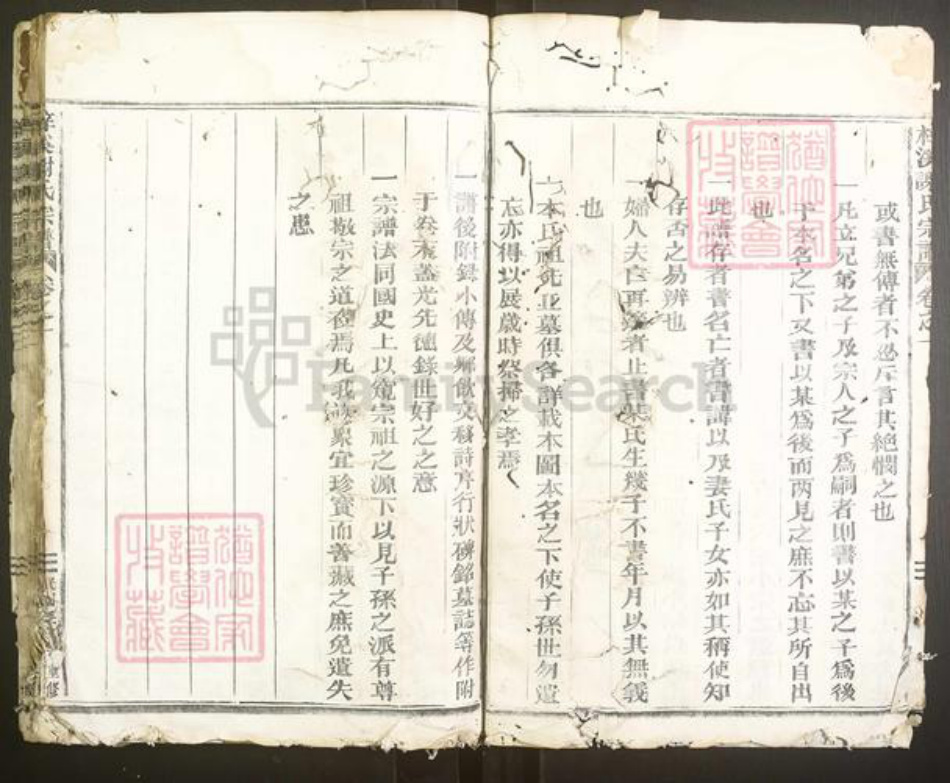 或書無傳者不忍斥言其絕憫之也
一凡立兄弟之子及宗人之子爲嗣者則書以某之子爲後
于本名之下又書以某爲後而两見之庶不忘其所自出
也
一此譜存者書名亡者書諱以及妻氏子女亦如其稱使知
存否之易辨也
一婦人夫亡再者止書某氏生幾子不書年月以其無義
也
一本氏祖先丘墓俱各詳載本圖本名之下使子孫世勿遺
忘亦得以展歲時祭掃之孝焉
一譜後附錄小傳及鄉飲文移詩序行狀碑銘墓誌等作附
于卷末蓋光先德錄世好之之意
一宗譜法同國史上以窺宗祖之源下以見子孫之派有尊
祖敬宗之道在焉凡我族眾宜珍寶而善藏之庶免遺失
之患
譜學會
收藏
FamilySearch